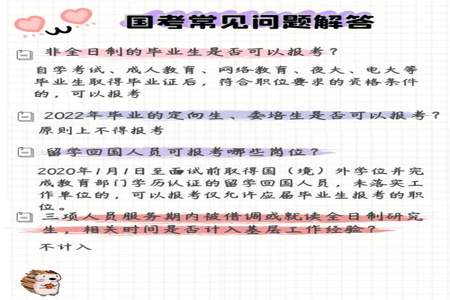 国考常见问题解答
非全日制的毕业生是否可以报考？
自学考试、成人教育、网络教育、夜大、电大等
毕业生取得毕业证后，符合职位要求的资格条件
的，可以报考
2022年毕业的定向生、委培生是否可以报考？
原则上不得报考
留学回国人员可报考哪些岗位？
2020年1月1日至面试前取得国（境）外学位并完
成教育部门学历认证的留学回国人员，未落实工
作单位的，可以报考仅允许应届毕业生报考的职
位。
三项人员服务期内被借调或就读全日制研究
生，相关时间是否计入基层工作经验？
不计入